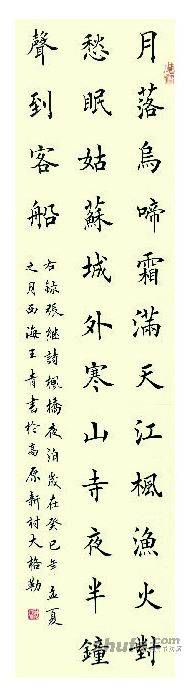 月落烏啼霜滿天江楓漁火對
愁眠姑蘇城外寒山寺夜半鐘
聲到客船
右錄張繼詩楓橋夜泊歲在癸巳年孟夏
之月西海王青書於高原新村大格勒